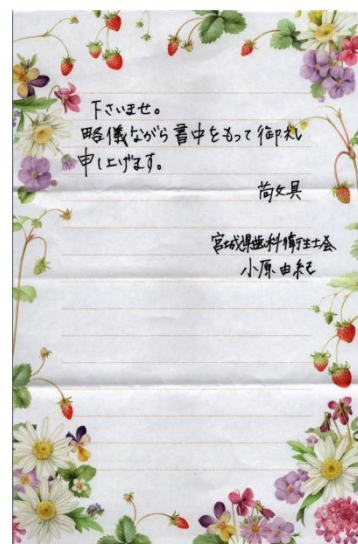 下さいませ。
略儀ながら書中をもって御礼
申し上げます。
宮城県歯科衛生士会
小原由紀